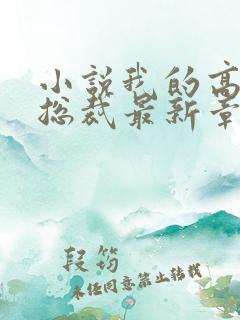 小说我的高
总裁最新章
段筠
未经同意禁止转载